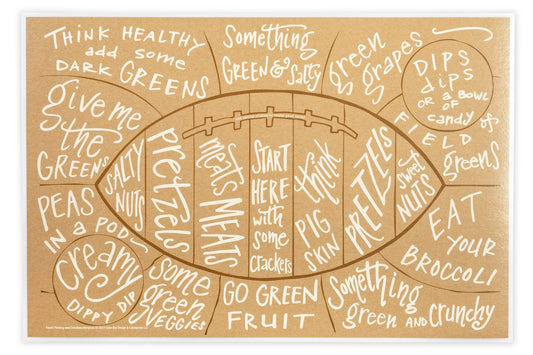 THINK HEALTHY
add some
DARK GREENS
Something
GREEN & Salty
green
grapes
DIPS
dips
OR a BOWL
OF
candy
give me
the
GREENS
SALTY
NUTS
Pretzels
meats
MEATS
START
HERE
with
some
crackers
think
PIG
SKIN
PRETZELS
sweet
NUTS
FIELD of
greens
PEAS
IN a POD
Creamy
DIPPY DIP
some
green
VEGGIES
GO GREEN
FRUIT
Something
green AND crunchy
EAT
YOUR
BROCCOLI